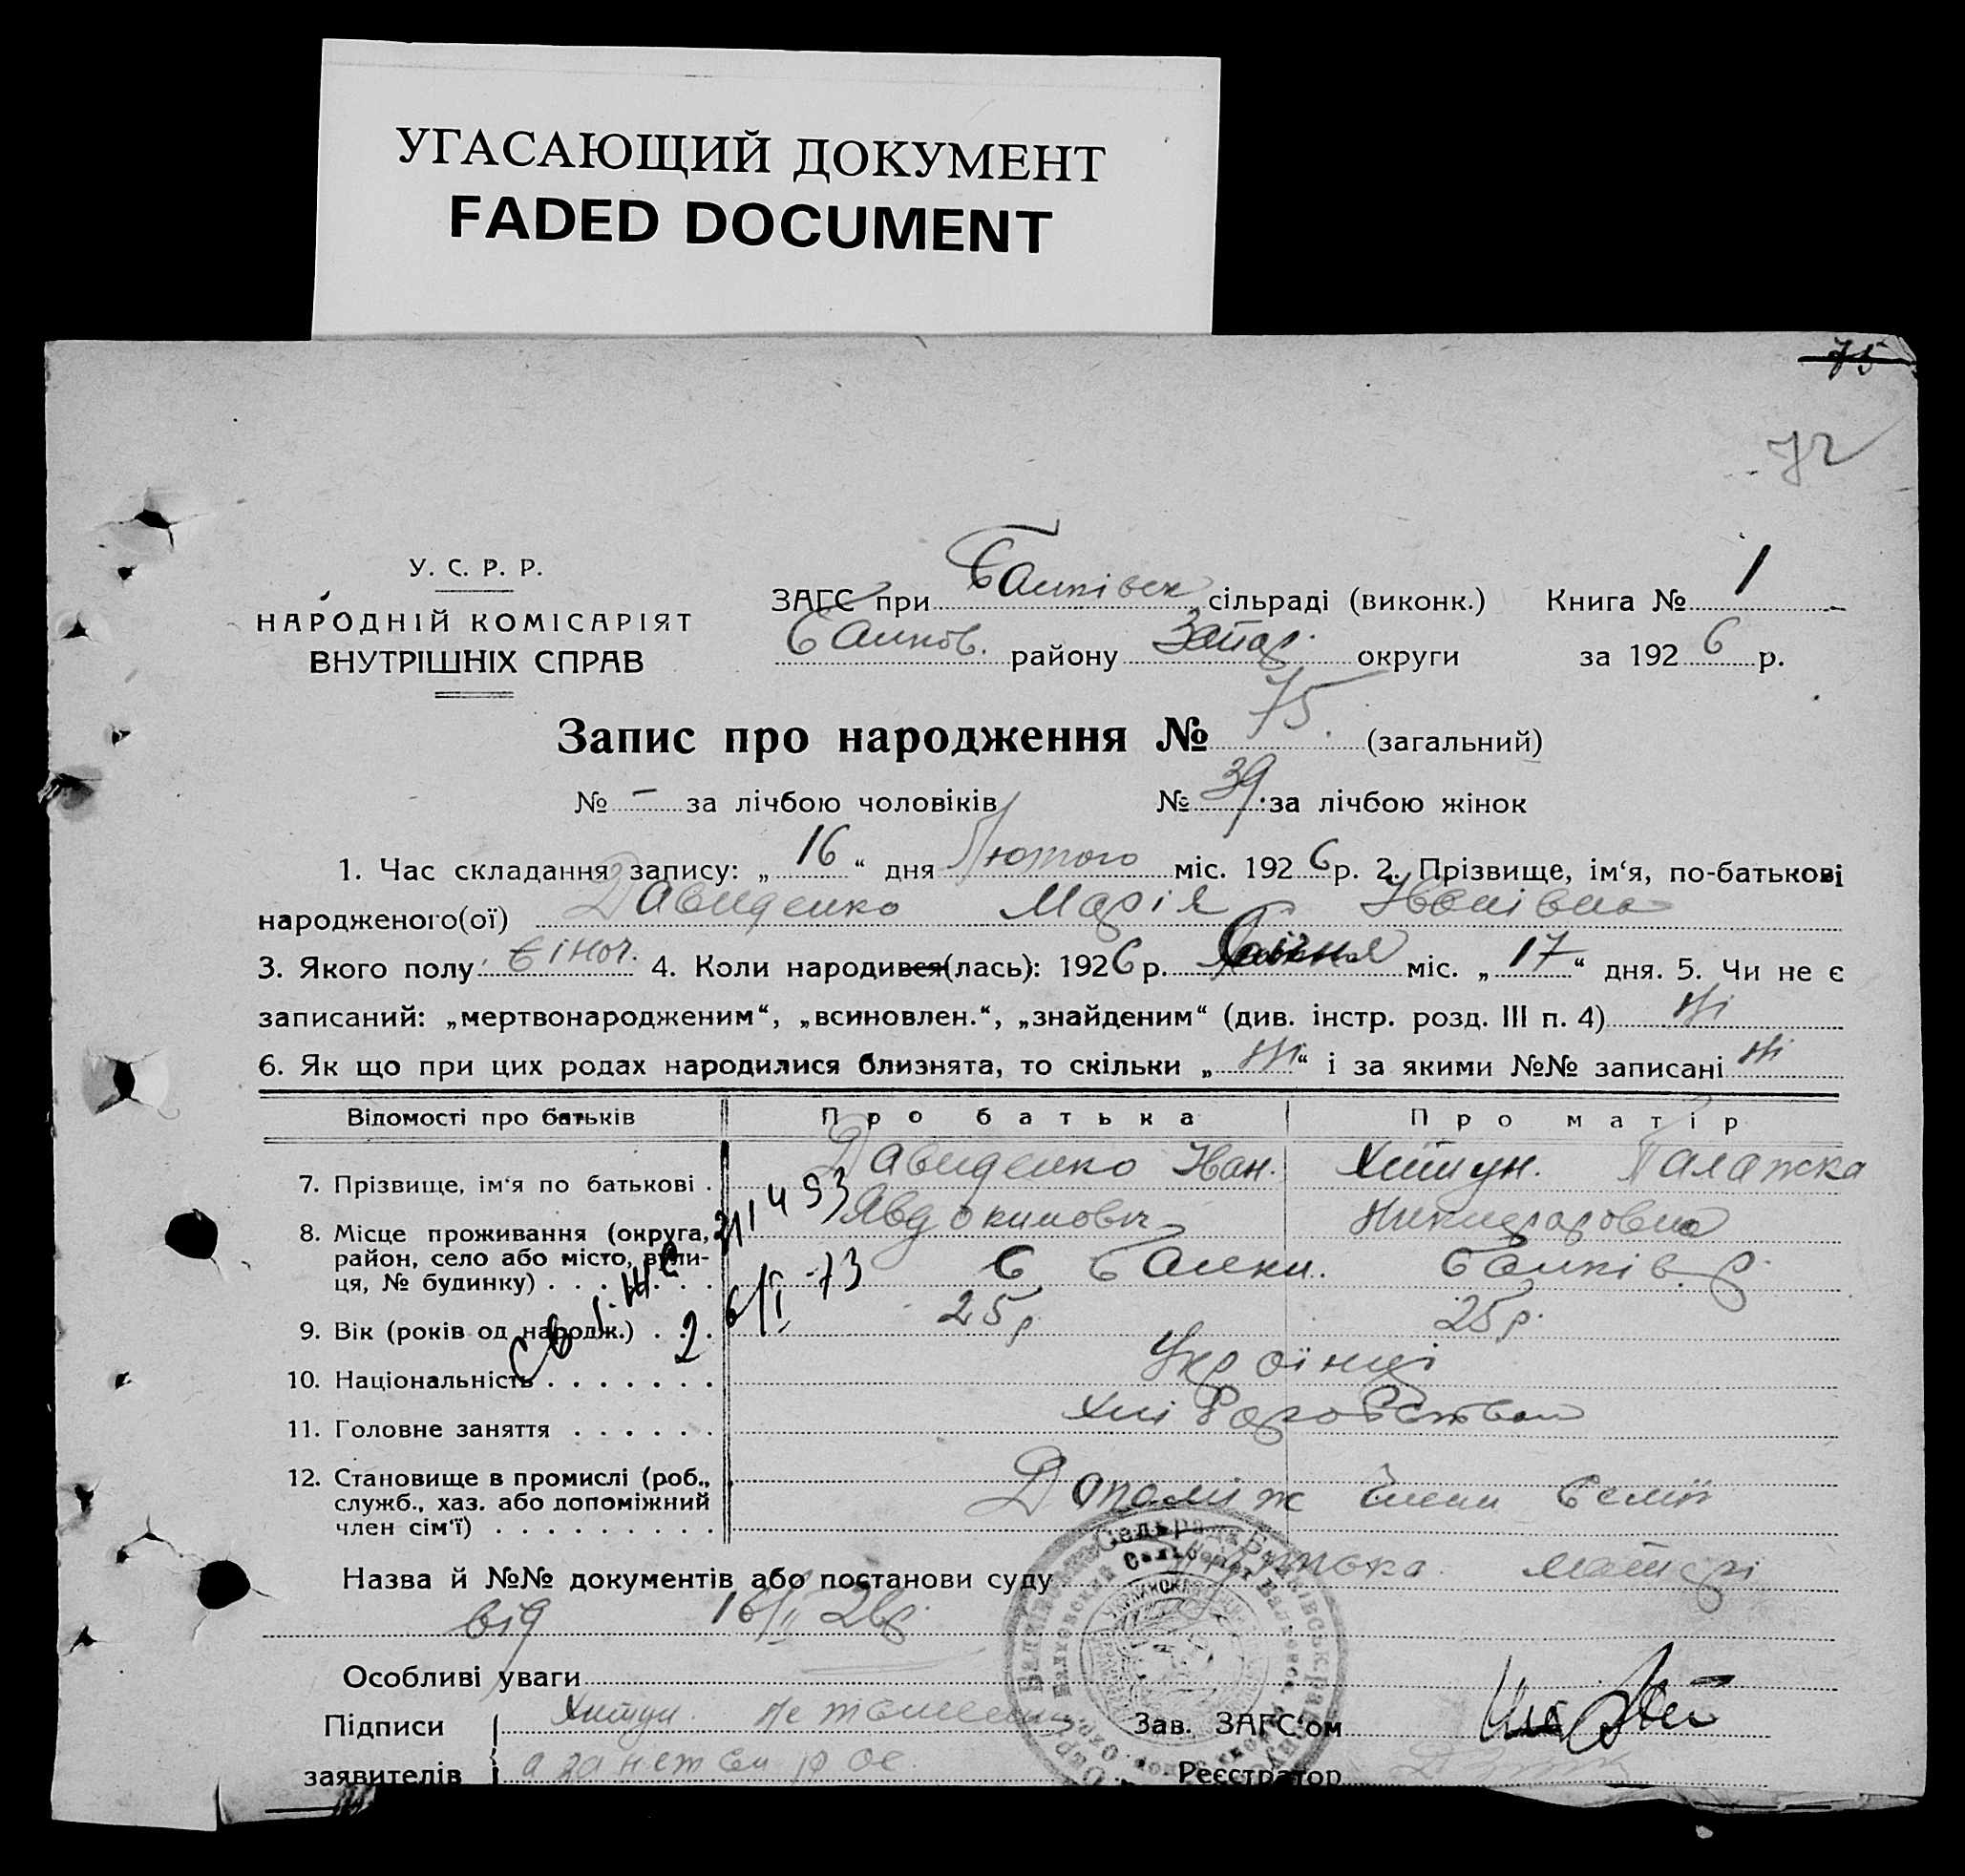 УГАСАЮЩИЙ ДОКУМЕНТ
FADED DOCUMENT
75
72
У. С. Р. Р.
НАРОДНІЙ КОМІСАРІЯТ
ВНУТРІШНІХ СПРАВ
ЗАГС при Балківськ сільраді (виконк.) Книга № 1
Балков. району Запор. округи за 1926 р.
Запис про народження № 75. (загальний)
№ – за лічбою чоловіків № 39 за лічбою жінок
1. Час складання запису: „16“ дня Лютого міс. 1926 р. 2. Прізвище, ім‘я, по-батькові
народженого(ої) Давиденко Марія Іванівна
3. Якого полу жіноч. 4. Коли народився(лась): 1926 р. Січня міс. „17“ дня. 5. Чи не є
записаний: „мертвонародженим“, „всиновлен.“, „знайденим“ (див. інстр. розд. III п. 4) Ні
6. Як що при цих родах народилися близнята, то скільки „Ні“ і за якими №№ записані Ні
Відомості про батьків Про батька Про матір
7. Прізвище, ім‘я по батькові . Давиденко Иван. Хитун. Палажка
8. Місце проживання (округа, Явдокимович Никифоровна
район, село або місто, вули-
ця, № будинку) . . . . . . . С Балки. Балків. р.
9. Вік (років од народж.) . . . 25 р. 25 р.
10. Національність . . . . . . . Українці
11. Головне заняття . . . . . . Хліборобством
12. Становище в промислі (роб.,
служб., хаз. або допоміжний Допоміж члени семії
член сім‘ї) . . . . . . . . .
Назва й №№ документів або постанови суду матері
від 16/II 26 р.
Особливі уваги
Підписи Хитун. Зав. ЗАГС‘ом
заявителів Реєстратор